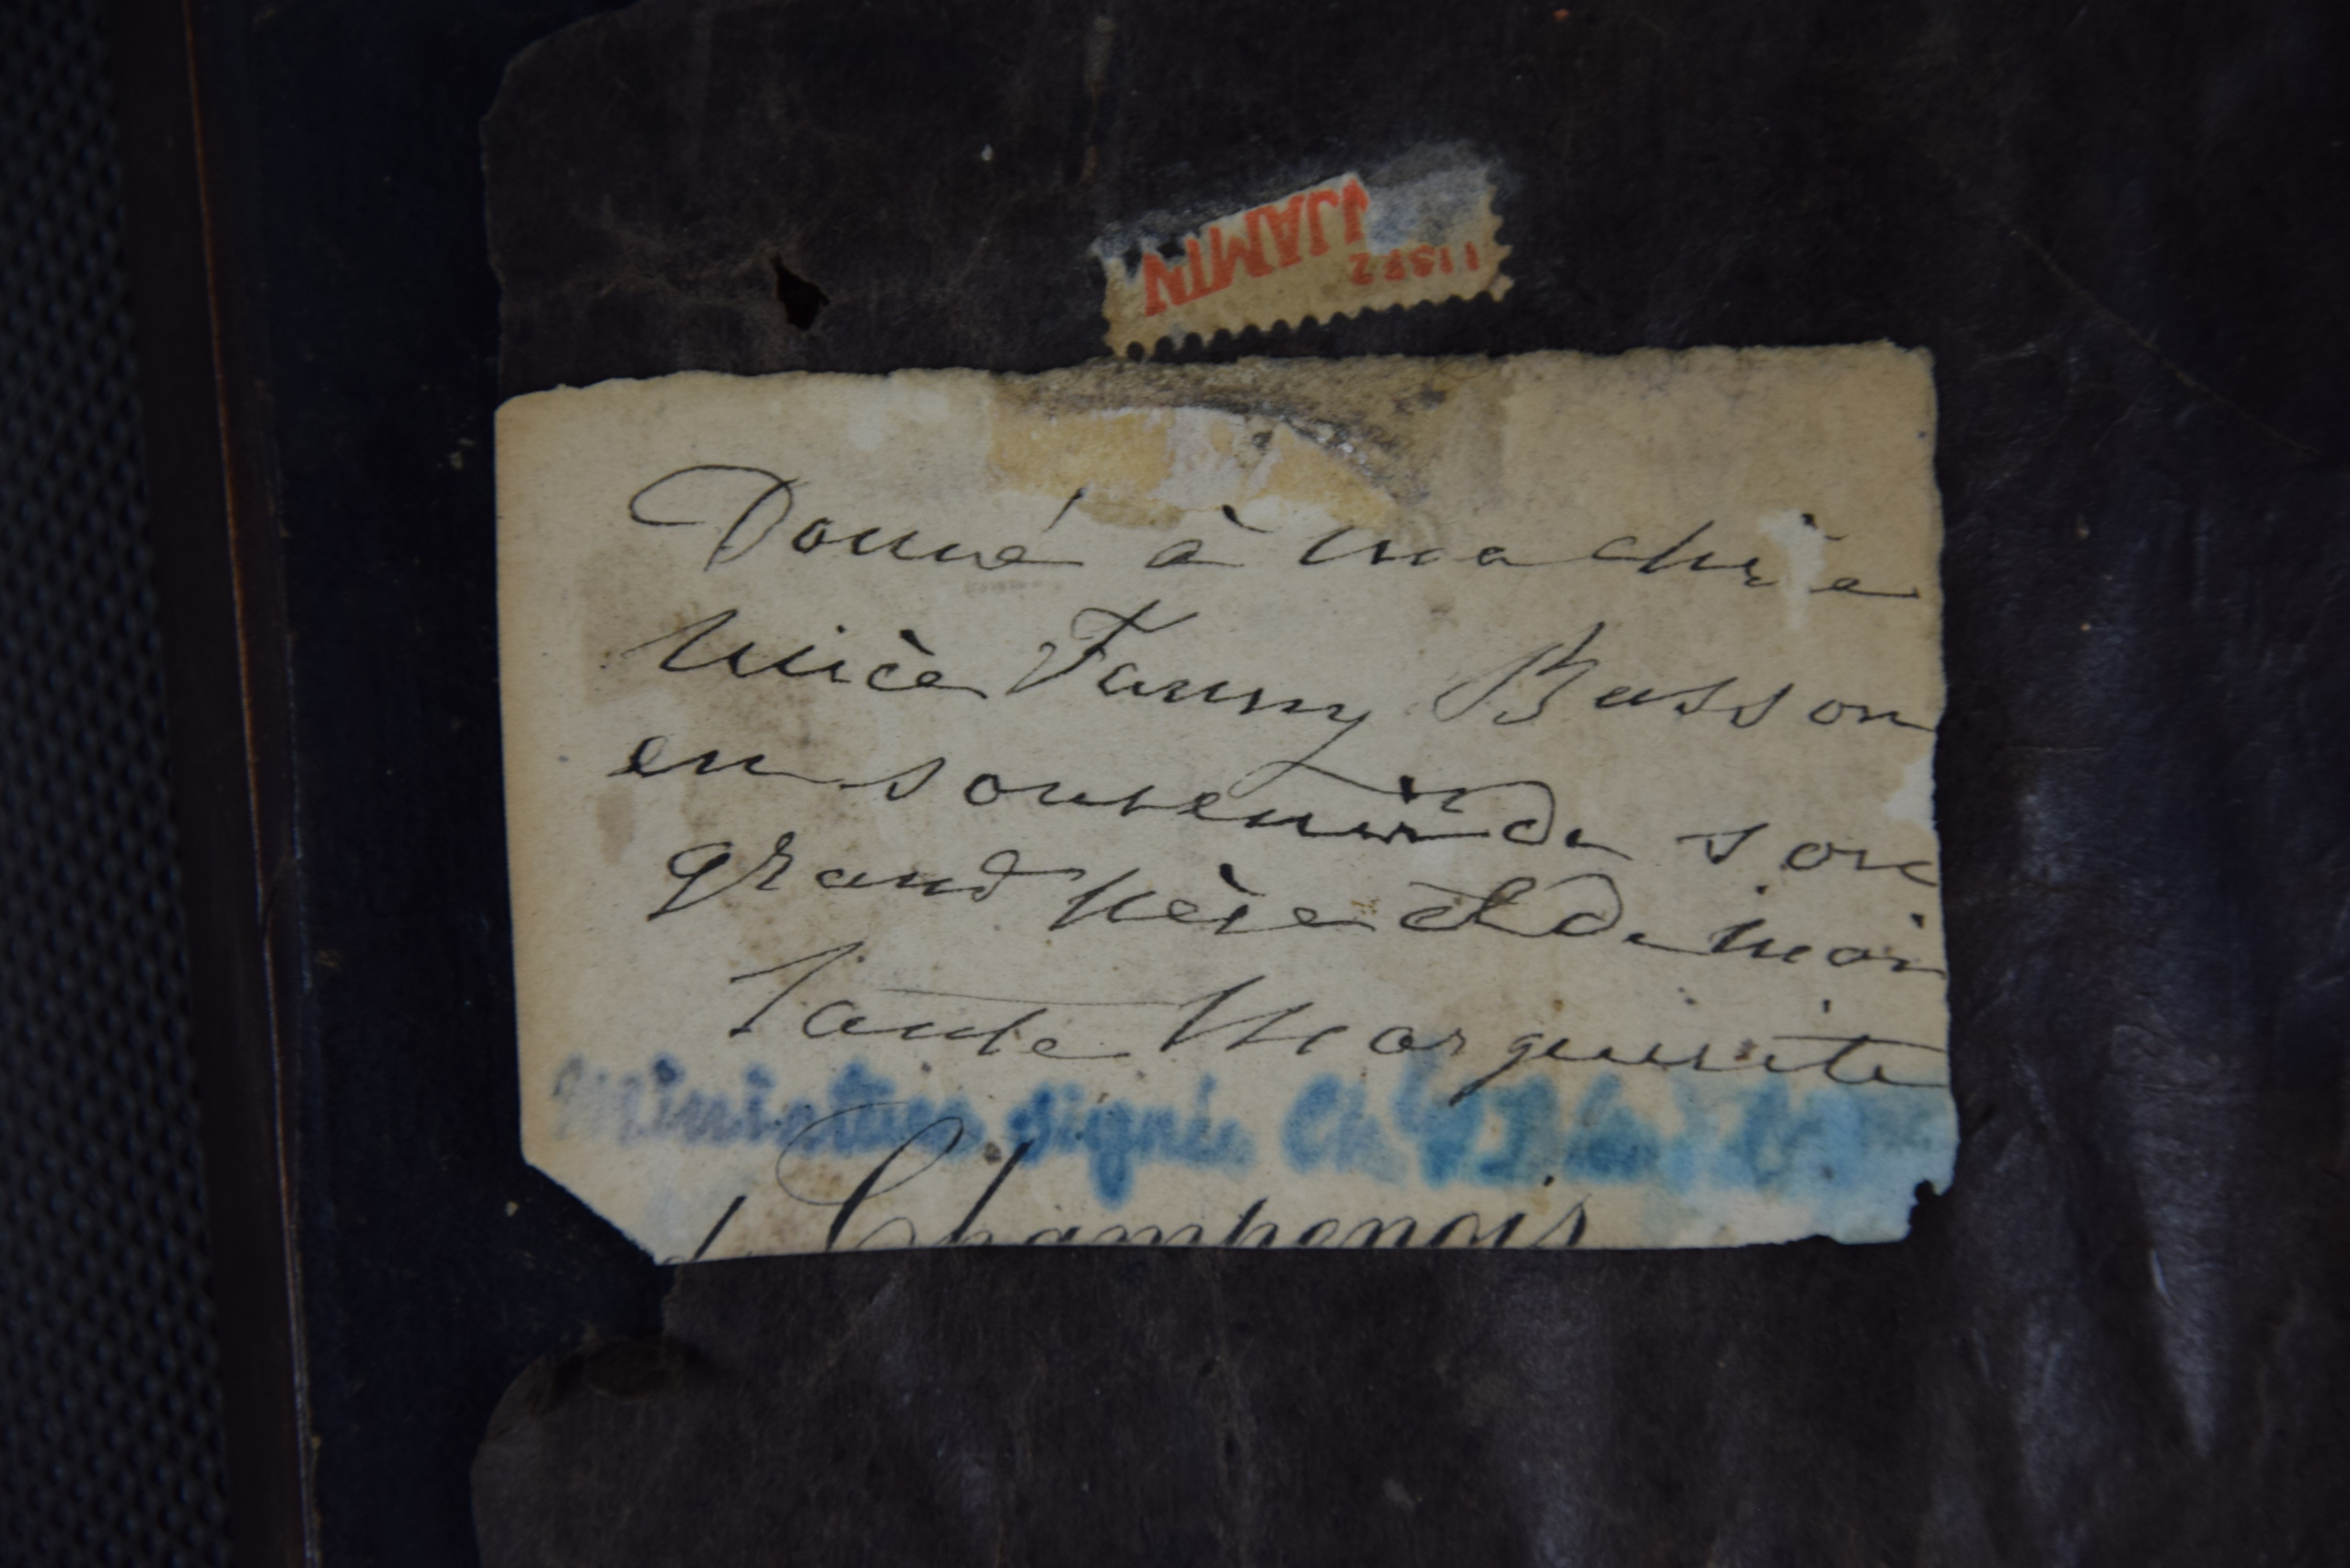 Donné à ma chère
nièce Fanny Basson
en souvenir de son
grand père et de moi
Tante Marguerite
Miniature signée Ch
Champenois